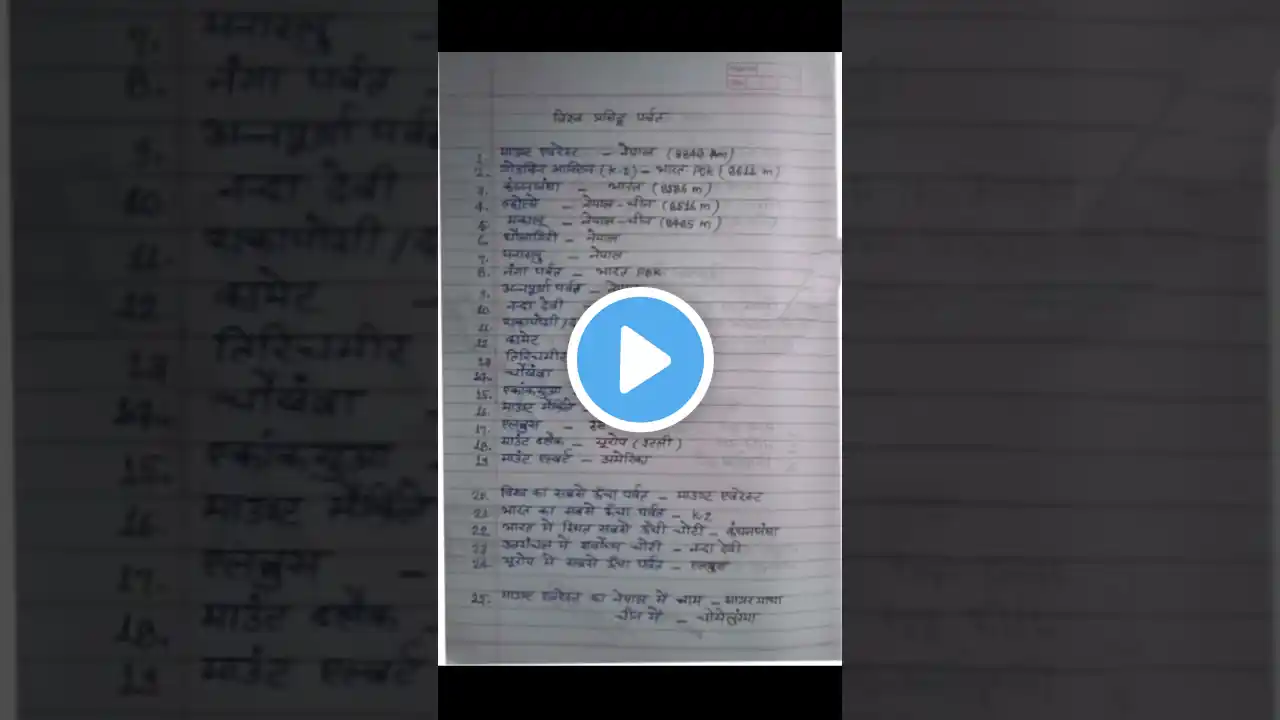 विश्व प्रसिद्ध पर्वत
1. माउण्ट एवरेस्ट – नेपाल (8848 m)
2. गोडविन आस्टिन (K-2) – भारत POK (8611 m)
3. कंचनजंघा – भारत (8586 m)
4. ल्होत्से – नेपाल-चीन (8516 m)
5. मकालू – नेपाल-चीन (8485 m)
6. धौलागिरी – नेपाल
7. मनासलु – नेपाल
8. नंगा पर्वत – भारत POK
9. अन्नपूर्णा पर्वत –
10. नन्दा देवी
11. राकापोशी /
12. कामेट
13. तिरिचमीर
14. चौखंबा
15.
16. माउण्ट
17. एलब्रुस –
18. माउंट ब्लैंक – यूरोप (इटली)
19. माउंट एल्बर्ट – अमेरिका
20. विश्व का सबसे ऊँचा पर्वत – माउण्ट एवरेस्ट
21. भारत का सबसे ऊँचा पर्वत – K-2
22. भारत में स्थित सबसे ऊँची चोटी – कंचनजंघा
23. में सर्वोच्च चोटी – नन्दा देवी
24. यूरोप में सबसे ऊँचा पर्वत – एलब्रुस
25. माउण्ट एवरेस्ट का नेपाल में नाम – सागरमाथा
चीन में – चोमोलुंगमा